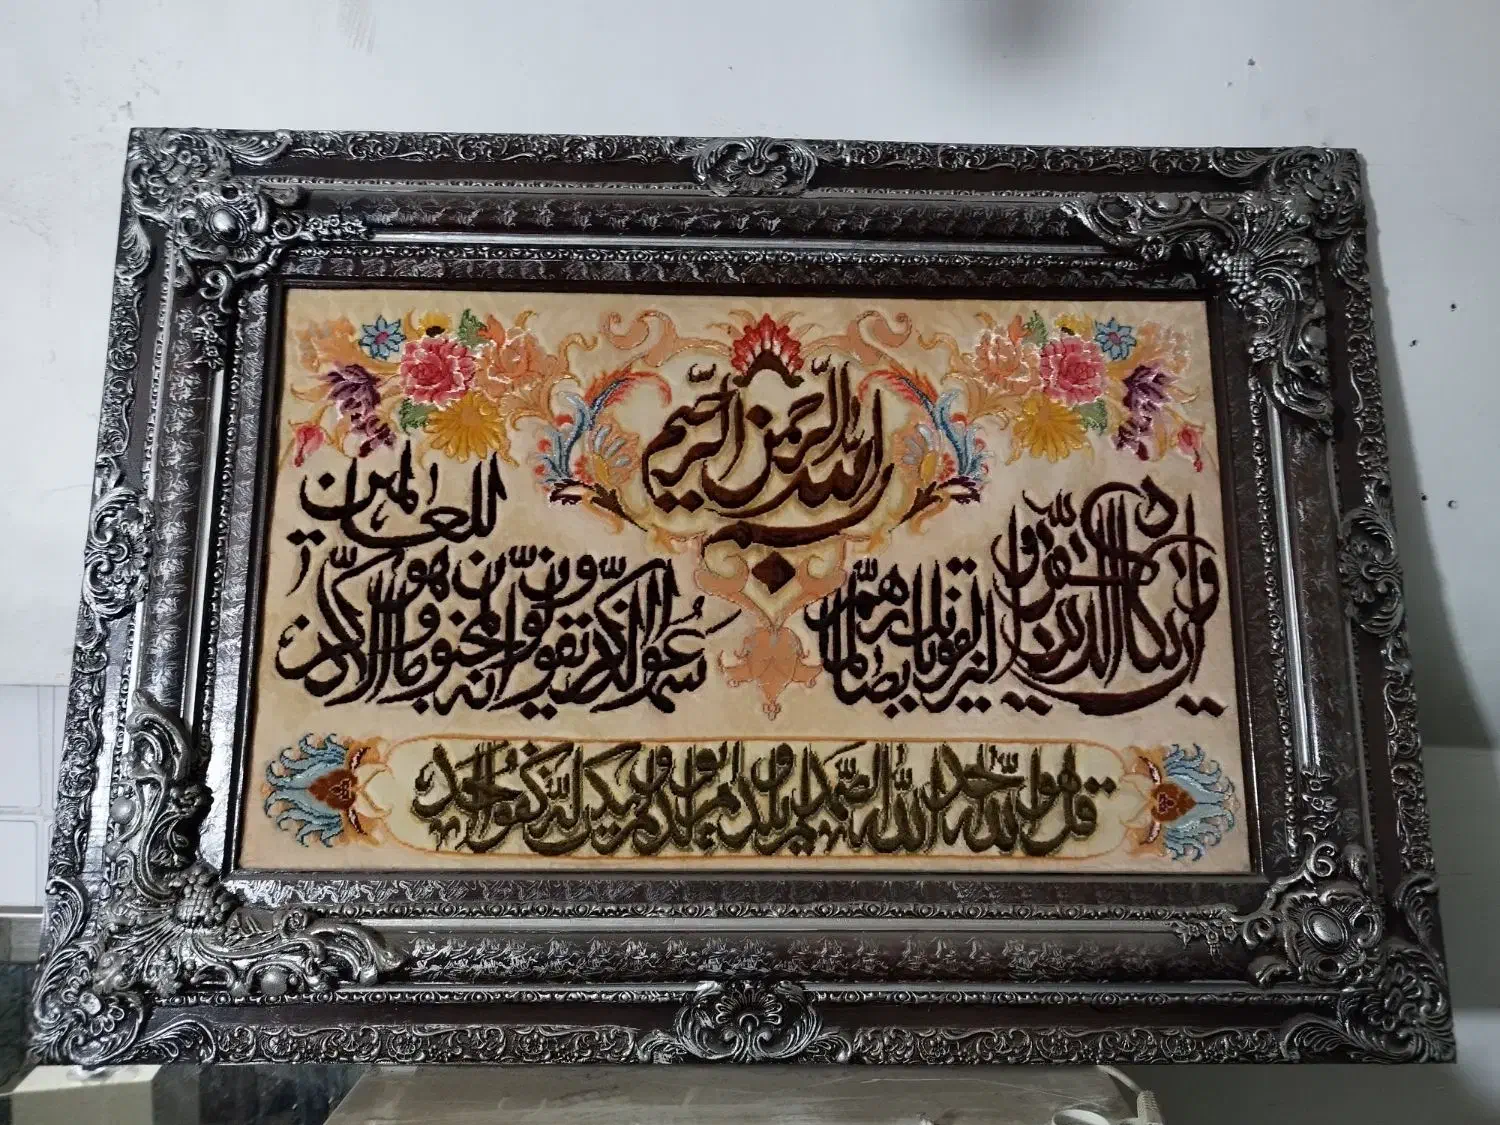 بسم الله الرحمن الرحيم
وان يكاد الذين كفروا ليزلقونك بابصارهم لما
سمعوا الذكر ويقولون انه لمجنون وما هو الا ذكر
للعالمين
قل هو الله احد الله الصمد لم يلد ولم يولد ولم يكن له كفوا احد